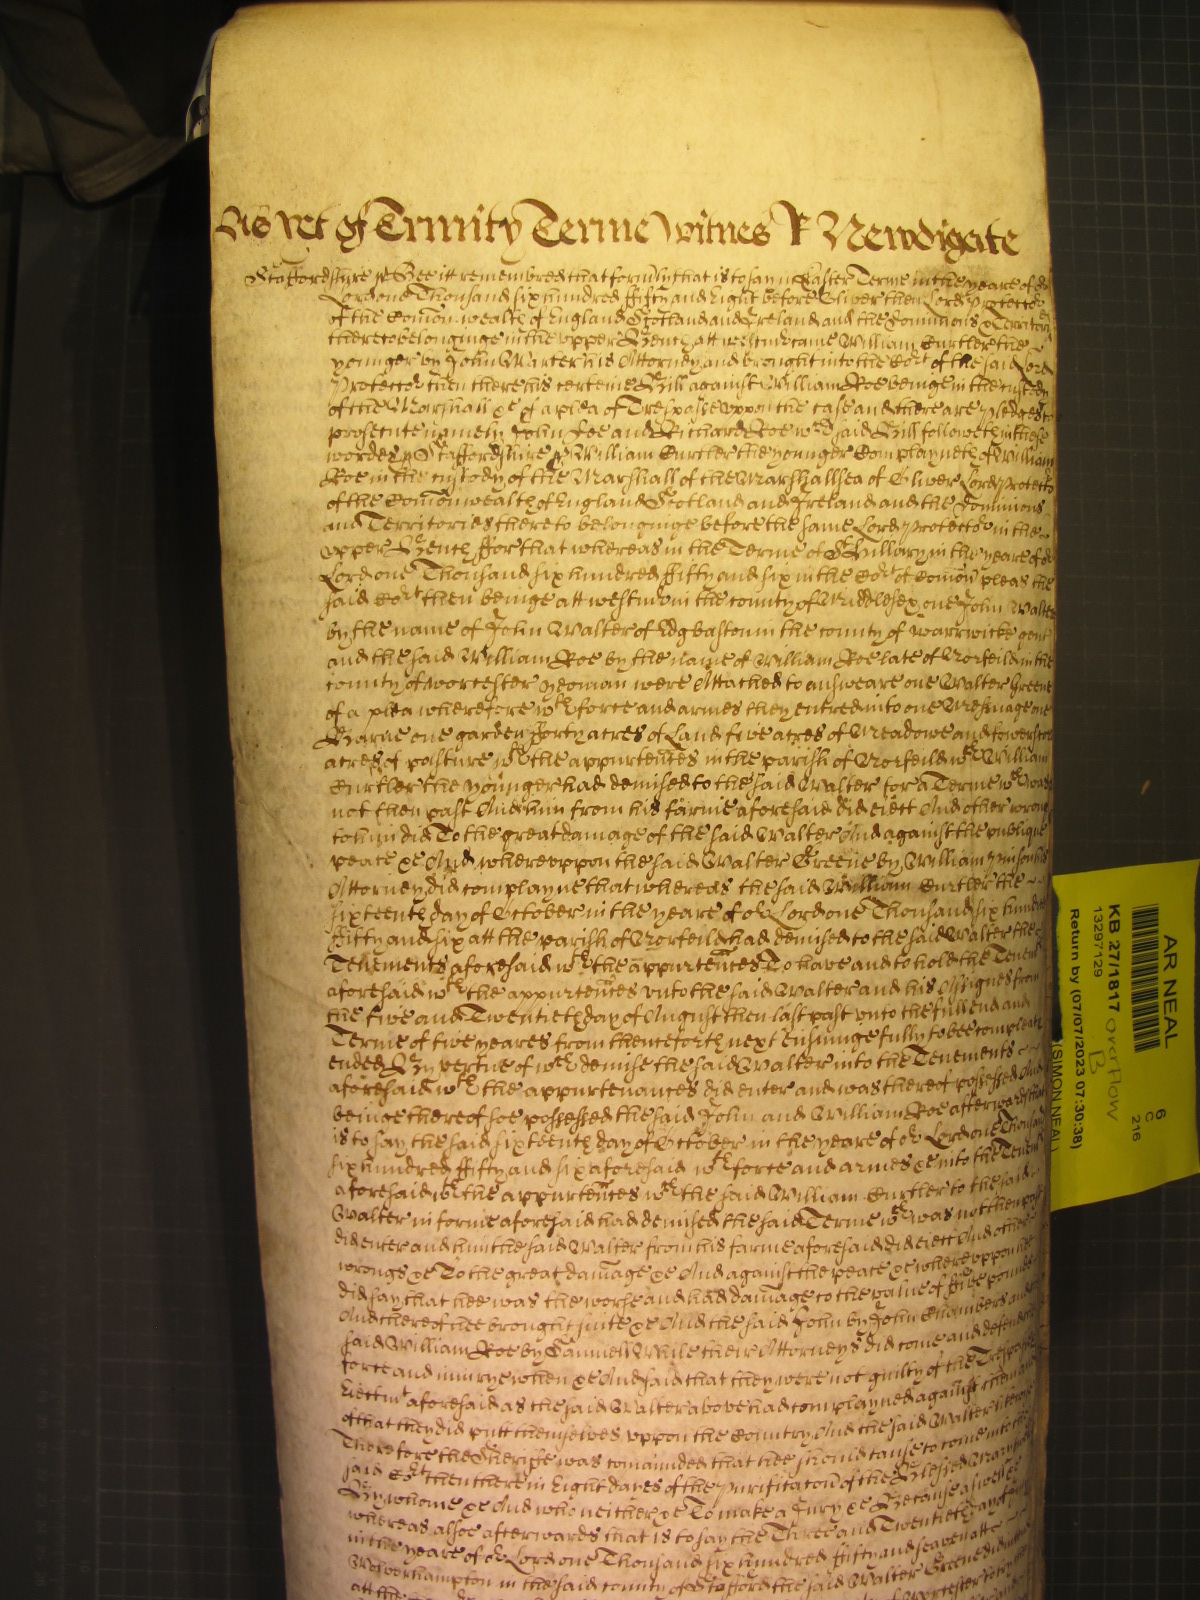 As yet of Trinity Terme Witnes R Newdigate
Staffordshyre ss Bee itt remembred that formly that is to say in Easter Terme in the yeare of
Lord one Thousand six hundred ffifty and eight before Oliver then Lord Protector
of the Comon wealth of England Scotland and Ireland and the dominions & Territor
thereto belonginge in the vpper Bench att westmr came William Curtler the
younger by John Warter his Attorney and brought into the Cort of the said Lord
Protector then there his certeine Bill against William Roe beinge in the custody
of the Marshall &c of a plea of Trespasse vppon the case and there are pledges to
prosecute namely John Doe and Richard Roe wch said Bill followeth in these
wordes ss Staffordshire ss William Curtler the younger Complayneth of William
Roe in the custody of the Marshall of the Marshallsea of Oliver Lord Protector
of the Comonwealth of England Scotland and Ireland and the dominions
and Territories there to belonginge before the same Lord Protector in the
vpper Bench ffor that whereas in the Terme of St Hillary in the yeare of or
Lord one Thousand six hundred ffifty and six in the Cort of Comon pleas the
said Cort then beinge att westmr in the county of Middlesex one John Walter
by the name of John Walter of Edgbaston in the county of warrwicke gent
and the said William Roe by the name of William Roe late of Norfeild in the
county of worcester yeoman were Attached to answeare one Walter Greene
of a plea wherefore wth force and armes they entred into one Messuage one
Barne one garden fforty acres of Land five acres of Meadowe and
acres of pasture wth the appurtences in the parish of Norfeild wch William
Curtler the younger had demised to the said Walter for a Terme wch was
not then past And him from his farme aforesaid did eiect And other wrongs
to him did To the great damage of the said Walter And against the publique
peace &c And wherevppon the said Walter Greene by William his
Attorney did complayne that whereas the said William Curtler the
sixteenth day of October in the yeare of or Lord one Thousand six hundred
ffifty and six att the parish of Norfeild had demised to the said Walter the
Tenements aforesaid wth the appurtences To have and to hold the Tenemts
aforesaid wth the appurtences vnto the said Walter and his Assignes from
the five and Twentieth day of August then last past vnto the full end and
Terme of five yeares from thenceforth next ensuinge fully to bee compleate
ended By vertue of wch demise the said Walter into the Tenements
aforesaid wth the appurtenances did enter and was thereof possessed And
beinge thereof soe possessed the said John and William Roe afterwards that
is to say the said sixteenth day of October in the yeare of or Lord one Thousand
six hundred ffifty and six aforesaid wth force and armes &c into the Tenemts
aforesaid wth the appurtences wch the said William Curtler to the said
Walter in forme aforesaid had demised the said Terme wch was not then past
did enter and him the said Walter from his farme aforesaid did eiect And other
wrongs &c To the great damage &c And against the peace &c wherevppon hee
did say that hee was the worse and had damage to the value of ffive pounds
And thereof hee brought suite &c And the said John by John Chambers and
said William Roe by Samuell Wile their Attorneys did come and defend
force and iniury when &c And said that they were not guilty of the Trespasse
Eiectmt aforesaid as the said Walter above had complayned against them and
of that they did putt themselves vppon the Country And the said Walter likewise
Therefore the Sheriffe was comaunded that hee should cause to come into the
said Cort then there in Eight dayes of the Purificacon of the Blessed Mary
By whome &c And who neither &c To make a Jury &c Because aswell &c
whereas alsoe afterwards that is to say the Three and Twentieth day of
in the yeare of or Lord one Thousand six hundred ffifty and seaven att
Wolverhampton in the said county of Stafford the said Walter Greene did
att the
AR NEAL
6
C
216
KB 27/1817 overflow
B
13297129
Return by (07/07/2023 07:30:38)
(SIMON NEAL)